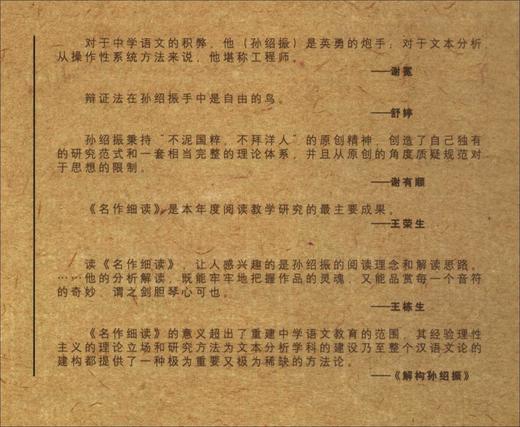 对于中学语文的积弊，他（孙绍振）是英勇的炮手；对于文本分析
从操作性系统方法来说，他堪称工程师。
——谢冕
辩证法在孙绍振手中是自由的鸟。
——舒婷
孙绍振秉持“不泥国粹，不拜洋人”的原创精神，创造了自己独有
的研究范式和一套相当完整的理论体系，并且从原创的角度质疑规范对
于思想的限制。
——谢有顺
《名作细读》是本年度阅读教学研究的最主要成果。
——王荣生
读《名作细读》，让人感兴趣的是孙绍振的阅读理念和解读思路。
……他的分析解读，既能牢牢地把握作品的灵魂，又能品赏每一个音符
的奇妙，谓之剑胆琴心可也。
——王栋生
《名作细读》的意义超出了重建中学语文教育的范围，其经验理性
主义的理论立场和研究方法为文本分析学科的建设乃至整个汉语文论的
建构都提供了一种极为重要又极为稀缺的方法论。
——《解构孙绍振》